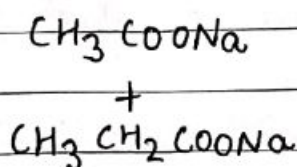 CH₃ COONa
+
CH₃ CH₂ COONa